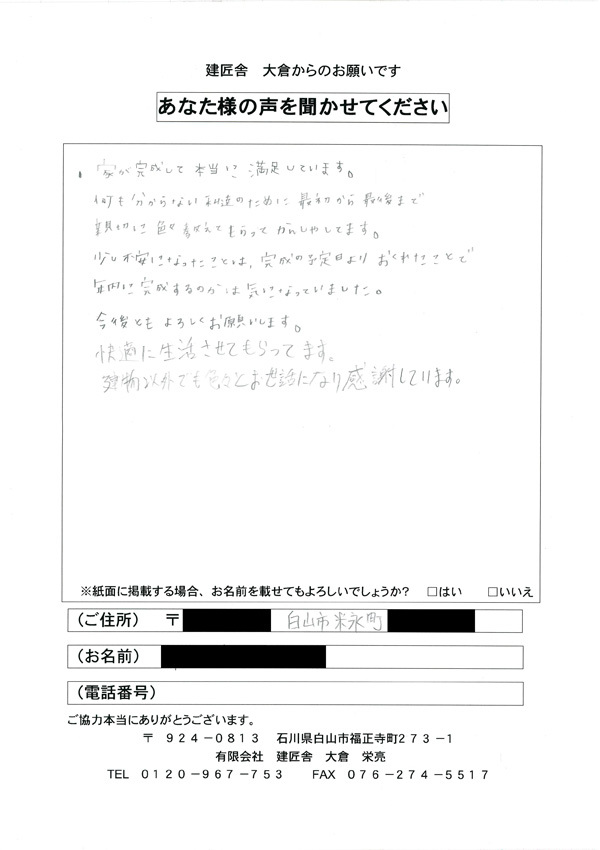 建匠舎 大倉からのお願いです
あなた様の声を聞かせてください
家が完成して本当に満足しています。
何も分からない私達のために最初から最後まで
親切に色々教えてもらってかんしゃしてます。
少し不安になったことは、完成の予定日よりおくれたことで
年内に完成するのかは気になっていました。
今後ともよろしくお願いします。
快適に生活させてもらってます。
建物以外でも色々とお世話になり感謝しています。
※紙面に掲載する場合、お名前を載せてもよろしいでしょうか? □はい □いいえ
(ご住所) 〒 白山市米永町
(お名前)
(電話番号)
ご協力本当にありがとうございます。
〒 924-0813 石川県白山市福正寺町273-1
有限会社 建匠舎 大倉 栄亮
TEL 0120-967-753 FAX 076-274-5517